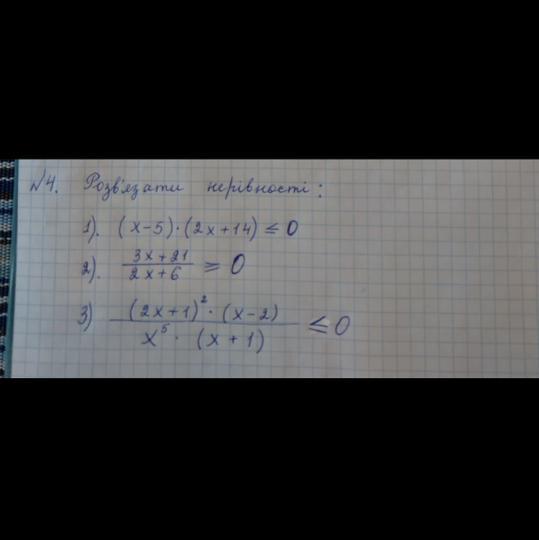 №4. Розв'язати нерівності:
1). (x-5)·(2x+14) ≤ 0
2). (3x+21)/(2x+6) ≥ 0
3) ((2x+1)²·(x-2))/(x⁵·(x+1)) ≤ 0